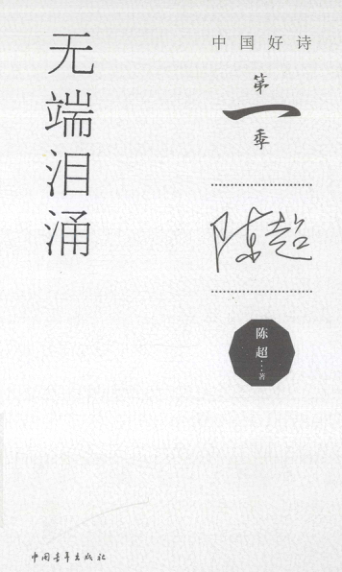 无端泪涌
中国好诗
第
一
季
陈超
陈超……著
中国青年出版社